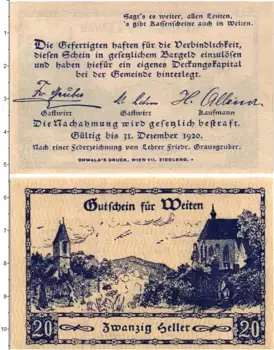 Sagt's es weiter, allen Leuten,
's gibt Kassenscheine aus in Weiten.
Die Gefertigten haften für die Verbindlichkeit,
diesen Schein in gesetzlichem Bargeld einzulösen
und haben hiefür ein eigenes Deckungskapital
bei der Gemeinde hinterlegt.
Gastwirt Gastwirt Kaufmann
Die Nachahmung wird gesetzlich bestraft.
Gültig bis 31. Dezember 1920.
Nach einer Federzeichnung von Lehrer Friedr. Grausgruber.
OHWALA'S DRUCK, WIEN VII, ZIEGLERG.
Gutschein für Weiten
20 Zwanzig Heller 20